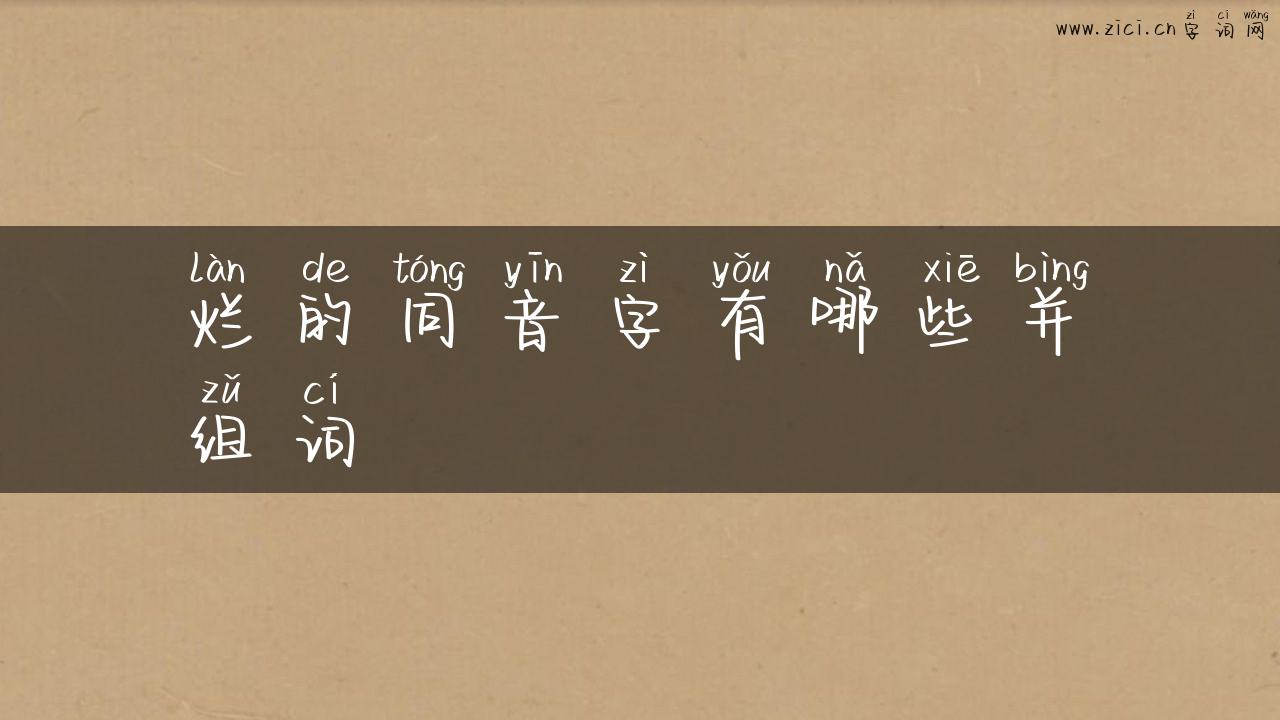 zì cí wǎng
www.zici.cn 字词网
làn de tóng yīn zì yǒu nǎ xiē bìng
烂的同音字有哪些并
zǔ cí
组词